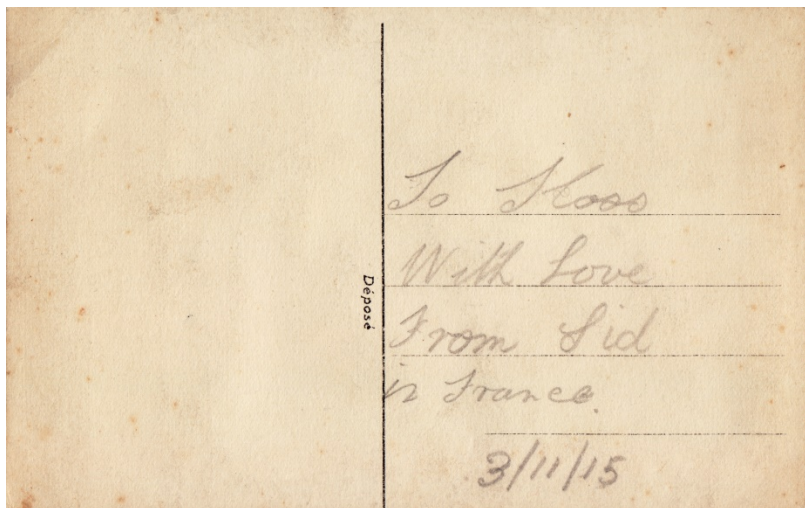 Déposé
To Floss
With Love
From Sid
in France.
3/11/15